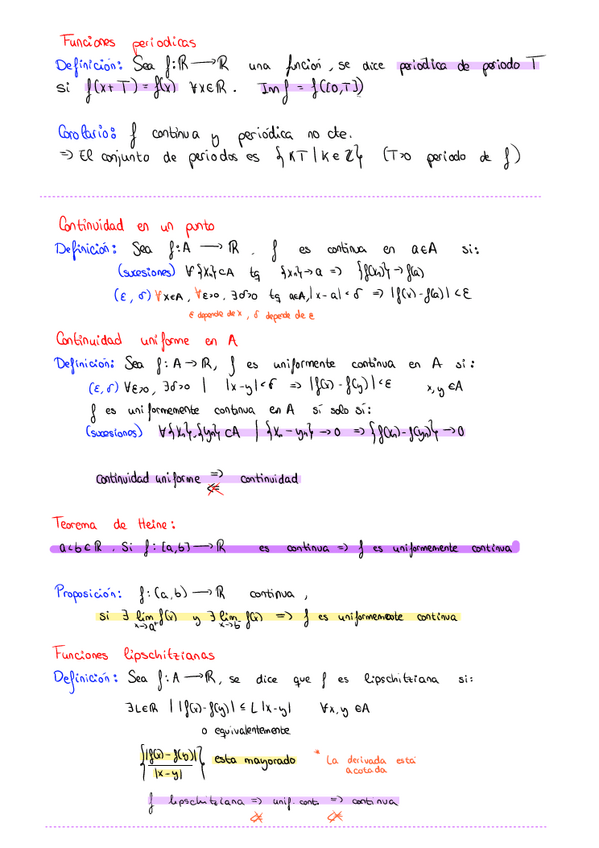 Funciones periodicas
Definición: Sea f: ℝ → ℝ una función, se dice periodica de periodo T
si f(x+T) = f(x) ∀x∈ℝ. Im f = f([0,T])
Corolario: f continua y periódica no cte.
=> El conjunto de periodos es {KT | K∈ℤ} (T>0 periodo de f)
Continuidad en un punto
Definición: Sea f: A → ℝ. f es continua en a∈A si:
(sucesiones) ∀{xn}⊂A tq {xn}→a => {f(xn)}→f(a)
(ε, δ) ∀x∈A, ∀ε>0, ∃δ>0 tq a∈A, |x-a|<δ => |f(x)-f(a)|<ε
ε depende de x, δ depende de ε
Continuidad uniforme en A
Definición: Sea f: A → ℝ, f es uniformente continua en A si:
(ε, δ) ∀ε>0, ∃δ>0 | |x-y|<δ => |f(x)-f(y)|<ε x,y∈A
f es uniformemente continua en A si solo si:
(sucesiones) ∀{xn},{yn}⊂A | {xn-yn}→0 => {f(xn)-f(yn)}→0
Continuidad uniforme => continuidad
<=
Teorema de Heine:
a<b∈ℝ. Si f: [a,b] → ℝ es continua => f es uniformemente continua
Proposición: f: (a,b) → ℝ continua,
si ∃ lim x→a f(x) y ∃ lim x→b f(x) => f es uniformemente continua
Funciones lipschitzianas
Definición: Sea f: A → ℝ, se dice que f es lipschitziana si:
∃L∈ℝ | |f(x)-f(y)| ≤ L|x-y| ∀x,y∈A
o equivalentemente
{|f(x)-f(y)| / |x-y|} esta mayorado * La derivada está
acotada
f lipschitziana => unif. cont. => continua
<= <=